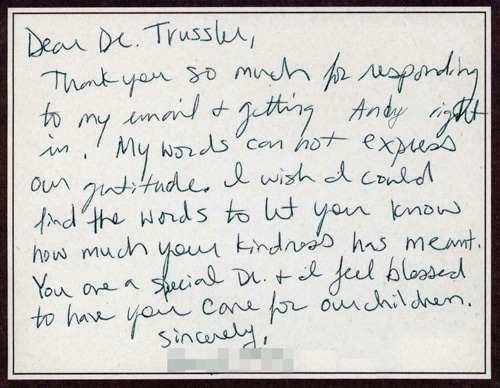 Dear Dr. Trussler,
Thank you so much for responding
to my email + getting Andy right
in. My words can not express
our gratitude. I wish I could
find the words to let you know
how much your kindness has meant.
You are a special Dr. + I feel blessed
to have you care for our children.
Sincerely,